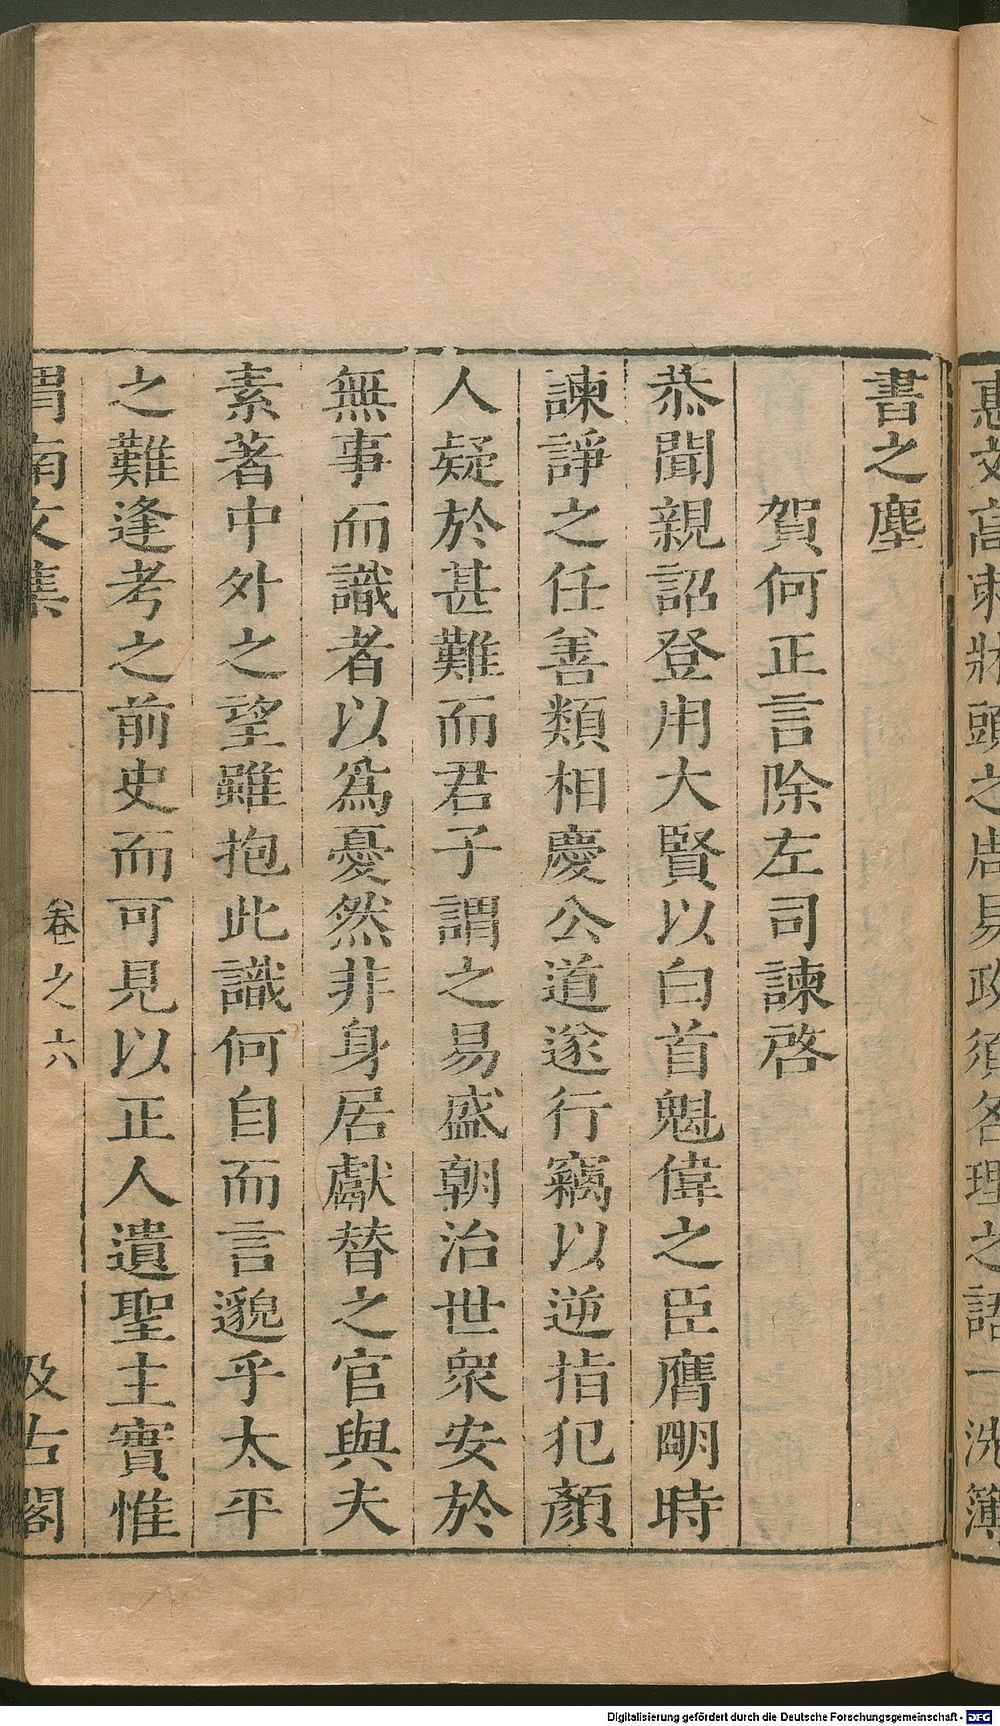 書之塵
賀何正言除左司諫啓
恭聞親詔登用大賢以白首魁偉之臣膺明時
諫諍之任善類相慶公道遂行竊以逆指犯顏
人疑於甚難而君子謂之易盛朝治世衆安於
無事而識者以爲憂然非身居獻替之官與夫
素著中外之望雖抱此識何自而言邈乎太平
之難逢考之前史而可見以正人遺聖主實惟
渭南文集 卷之六 汲古閣
頭之周易政須各理之語一洗簿
Digitalisierung gefördert durch die Deutsche Forschungsgemeinschaft - DFG